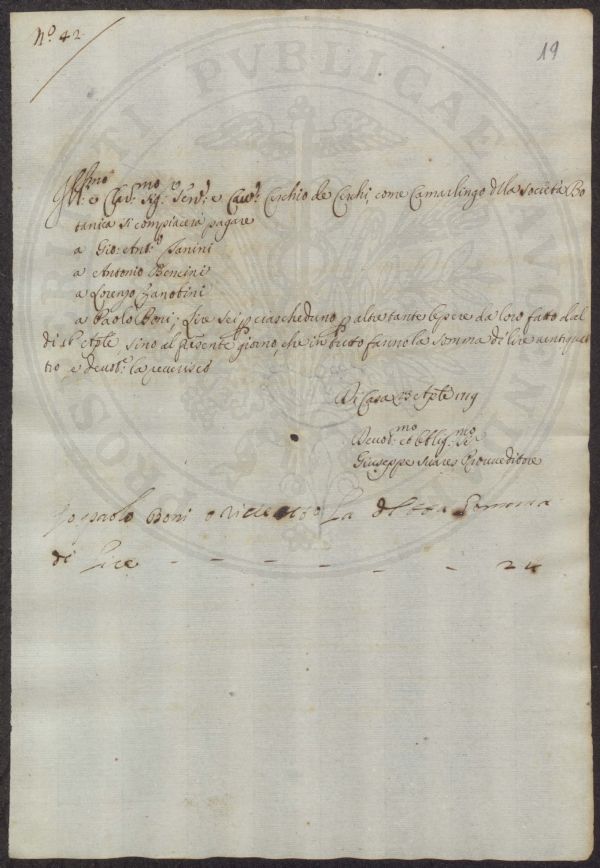 Nº. 42
19
Ill.mo e Clar.mo Sig.r e Cav.r Cerchio de Cerchi, come Camarlingo dlla Società Bo
tanica si compiacerà pagare
a Gio: Ant.o Janini
a Antonio Bencini
a Lorenzo Zanobini
a Paolo Boni; Lire sei p ciascheduno, p altre tante lepere da loro fatto dal
di 16 Aple sino al presente giorno, che in tutto fanno la somma di lire ventiquat
tro e devot.e la reverisco
Di Casa 23 Aple 1719
Devot.mo et Obblig.mo Se.
Giuseppe Suares Provveditore
Io paolo Boni o Riceuto La detta Somma
di Lire - - - - - - - 24